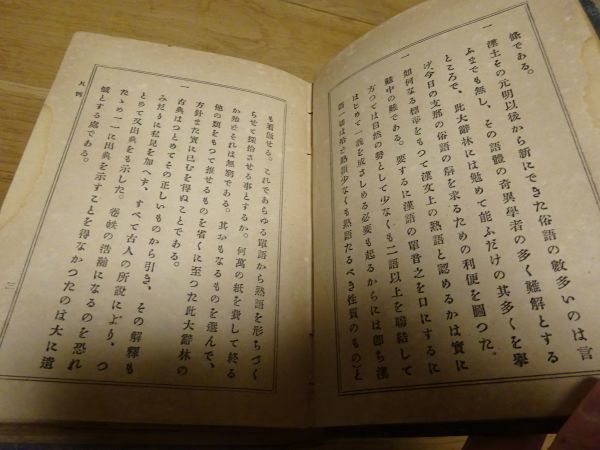 條である。
一 漢土その元明以後から新にできた俗語の數多いのは言
ふまでも無し、その語體の奇異學者の多く難解とする
ところで、此大辭林には勉めて能ふだけの其多くを擧
げ、今日の支那の俗語の
を求るための利便を圖つた。
一 如何なる標準をもつて漢文上の熟語と認めるかは實に
中の
である。要するに漢語の單音之を口にするに
方つては自然の勢として少なくも二語以上を聯結して
はじめて一義を成さしめる必要も起るからには卽ち漢
熟語少なくも熟語たるべき性質のもの)と
も看做せる。これであらゆる單語から熟語を形ちづく
らせて採俗させる事とするか。何萬の紙を費して終る
か殆どそれは無窮である。其おもなるものを選んで、
他の類をもつて推せるものを省くに至つた此大辭林の
方針また實に已むを得ぬことである。
一 古典はつとめてその正しいものから引き、その解釋も
みだりに私見を加へず、すべて古人の所說により、つ
とめて又出典をも示した。卷帙の浩瀚になるのを恐れ
たゝめ一一に出典を示すことを得なかつたのは大に遺
憾とする處である。
凡例
三